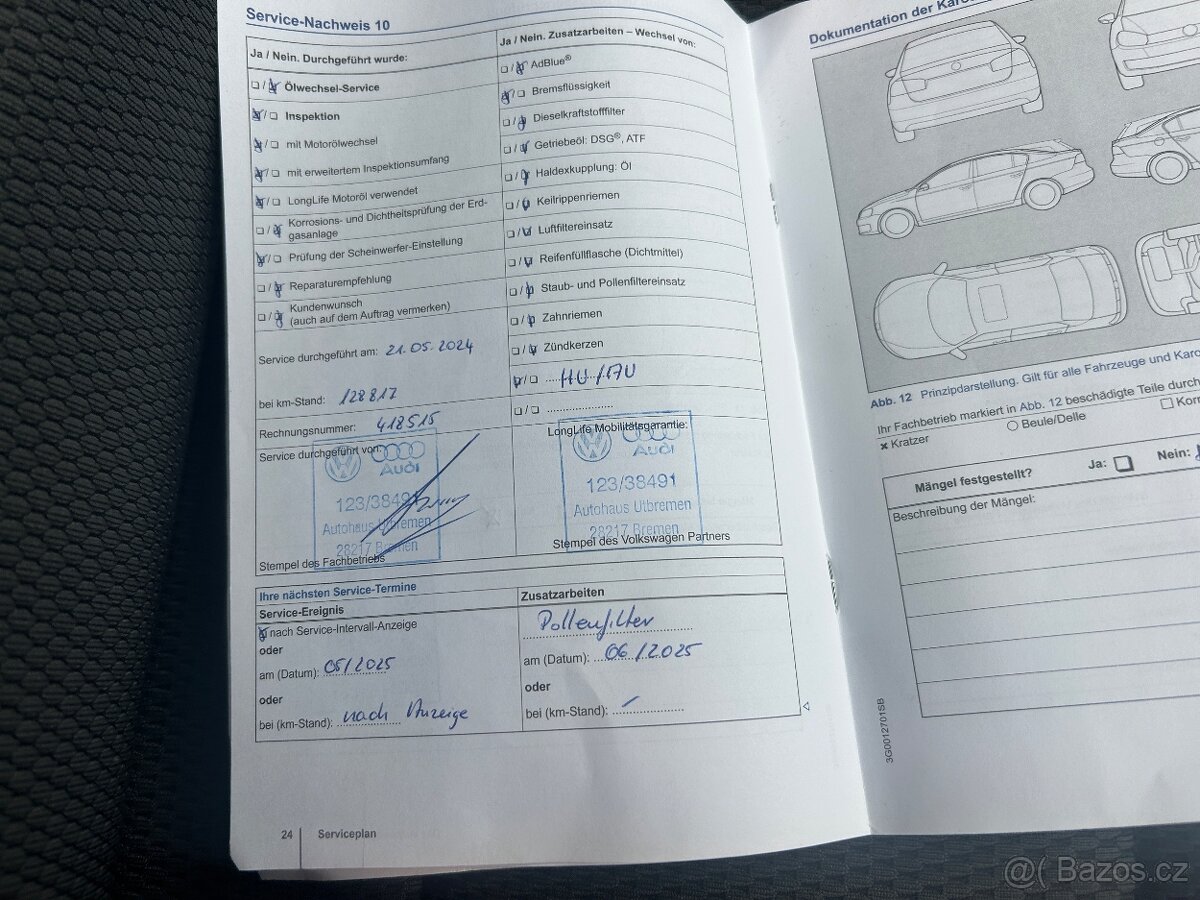 Service-Nachweis 10
Ja / Nein. Durchgeführt wurde:
Ölwechsel-Service
Inspektion
mit Motorölwechsel
mit erweitertem Inspektionsumfang
LongLife Motoröl verwendet
Korrosions- und Dichtheitsprüfung der Erd-
gasanlage
Prüfung der Scheinwerfer-Einstellung
Reparaturempfehlung
Kundenwunsch
(auch auf dem Auftrag vermerken)
Service durchgeführt am: 21.05.2024
bei km-Stand: 128817
Rechnungsnummer: 418515
Service durchgeführt von:
Audi
123/38491
Autohaus Utbremen
28217 Bremen
Stempel des Fachbetriebs
Ja / Nein. Zusatzarbeiten – Wechsel von:
AdBlue®
Bremsflüssigkeit
Dieselkraftstofffilter
Getriebeöl: DSG®, ATF
Haldexkupplung: Öl
Keilrippenriemen
Luftfiltereinsatz
Reifenfüllflasche (Dichtmittel)
Staub- und Pollenfiltereinsatz
Zahnriemen
Zündkerzen
HU/AU
LongLife Mobilitätsgarantie:
Audi
123/38491
Autohaus Utbremen
28217 Bremen
Stempel des Volkswagen Partners
Ihre nächsten Service-Termine
Service-Ereignis
nach Service-Intervall-Anzeige
oder
am (Datum): 05/2025
oder
bei (km-Stand): nach Anzeige
Zusatzarbeiten
Pollenfilter
am (Datum): 06/2025
oder
bei (km-Stand):
24 Serviceplan
Dokumentation der
Abb. 12 Prinzipdarstellung. Gilt für alle Fahrzeuge und
Ihr Fachbetrieb markiert in Abb. 12 beschädigte Teile
Kratzer
Beule/Delle
Mängel festgestellt? Ja: Nein:
Beschreibung der Mängel:
3G0012701SB
@( Bazos.cz